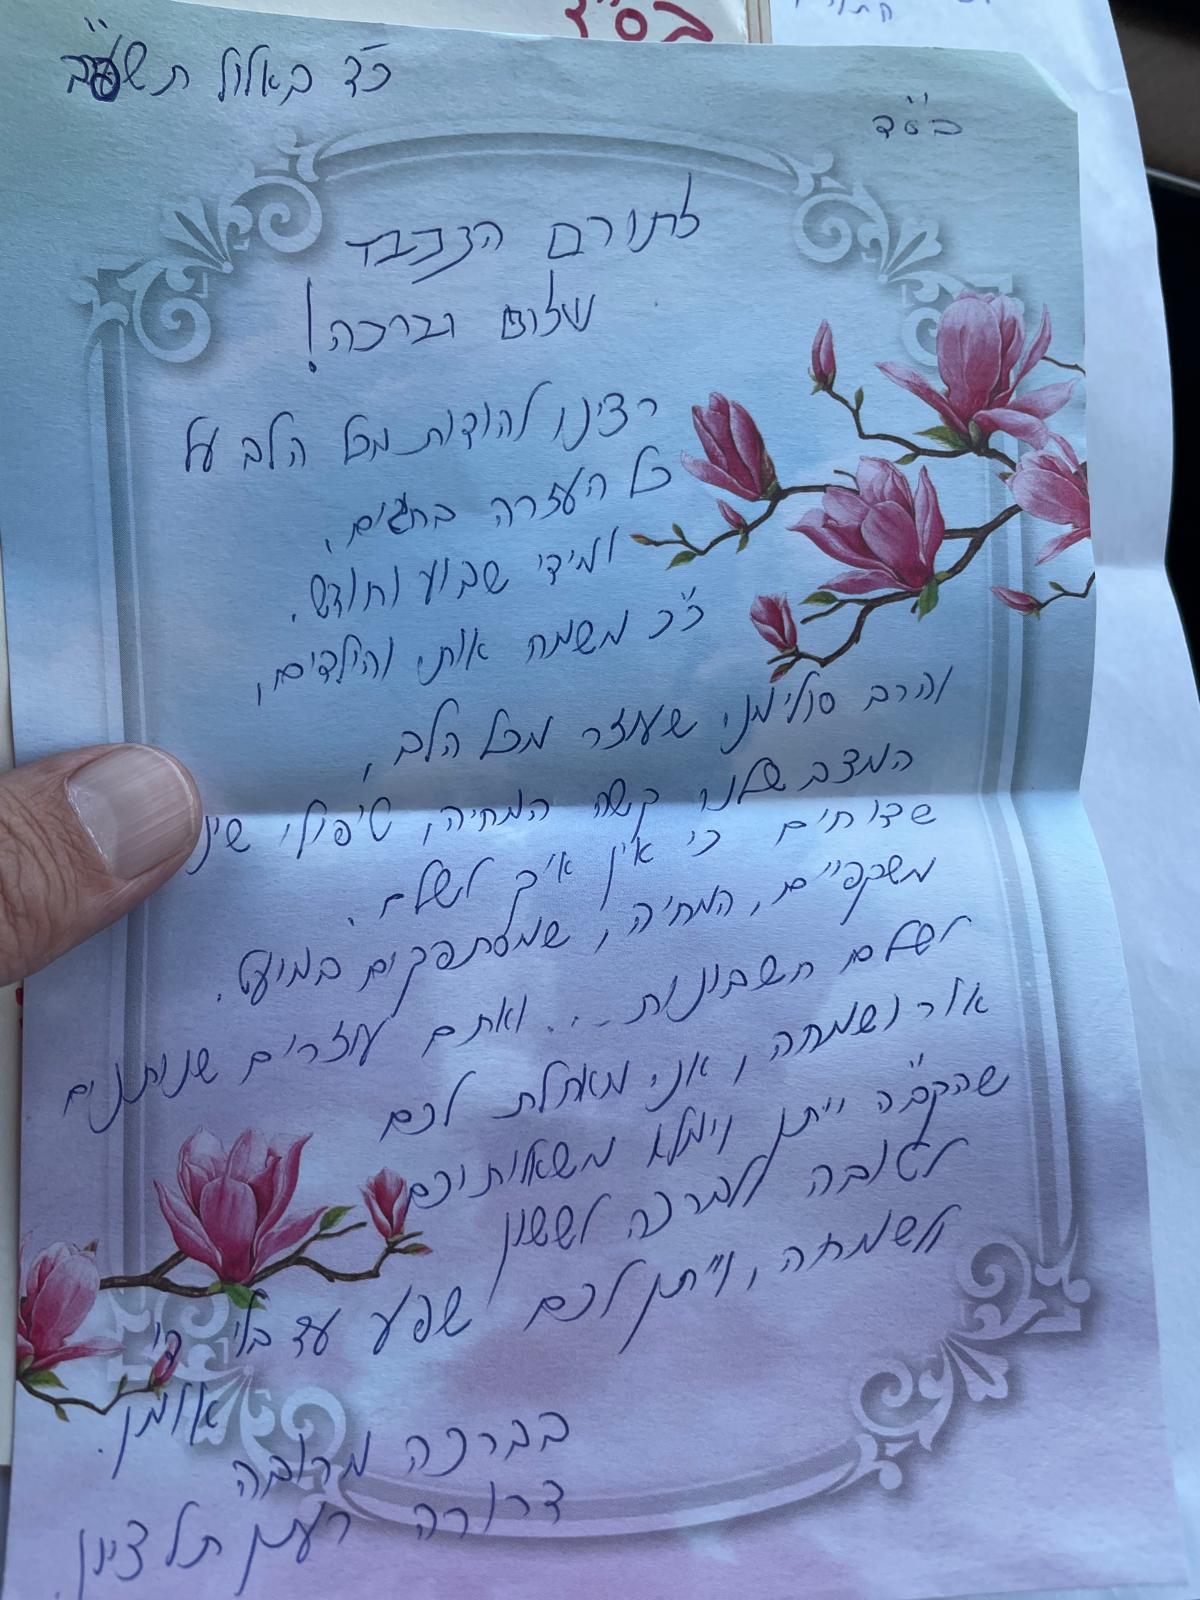 בס"ד
כ"ד באלול תש
בס"ד
לתורם הנכבד
שלום וברכה!
רצינו להודות מכל הלב על
כל העזרה בחגים,
ומידי שבוע וחודש.
כ"כ משמח אותי והילדים,
והרב סולימני שעוזר מכל הלב,
המצב שלנו קשה המחיה, טיפולי
שדוחים כי אין איך לשלם.
משקפיים, המחיה, שמסתפקים במועט.
לשלם חשבונות... ואתם עוזרים שנותנים
אור ושמחה, אני מאחלת לכם
שהקב"ה ייתן וימלא משאלותיכם
לטובה ולברכה לששון
ולשמחה, וייתן לכם שפע עד בלי די
אומן.
בברכה מרובה
דרורה תל ציון.